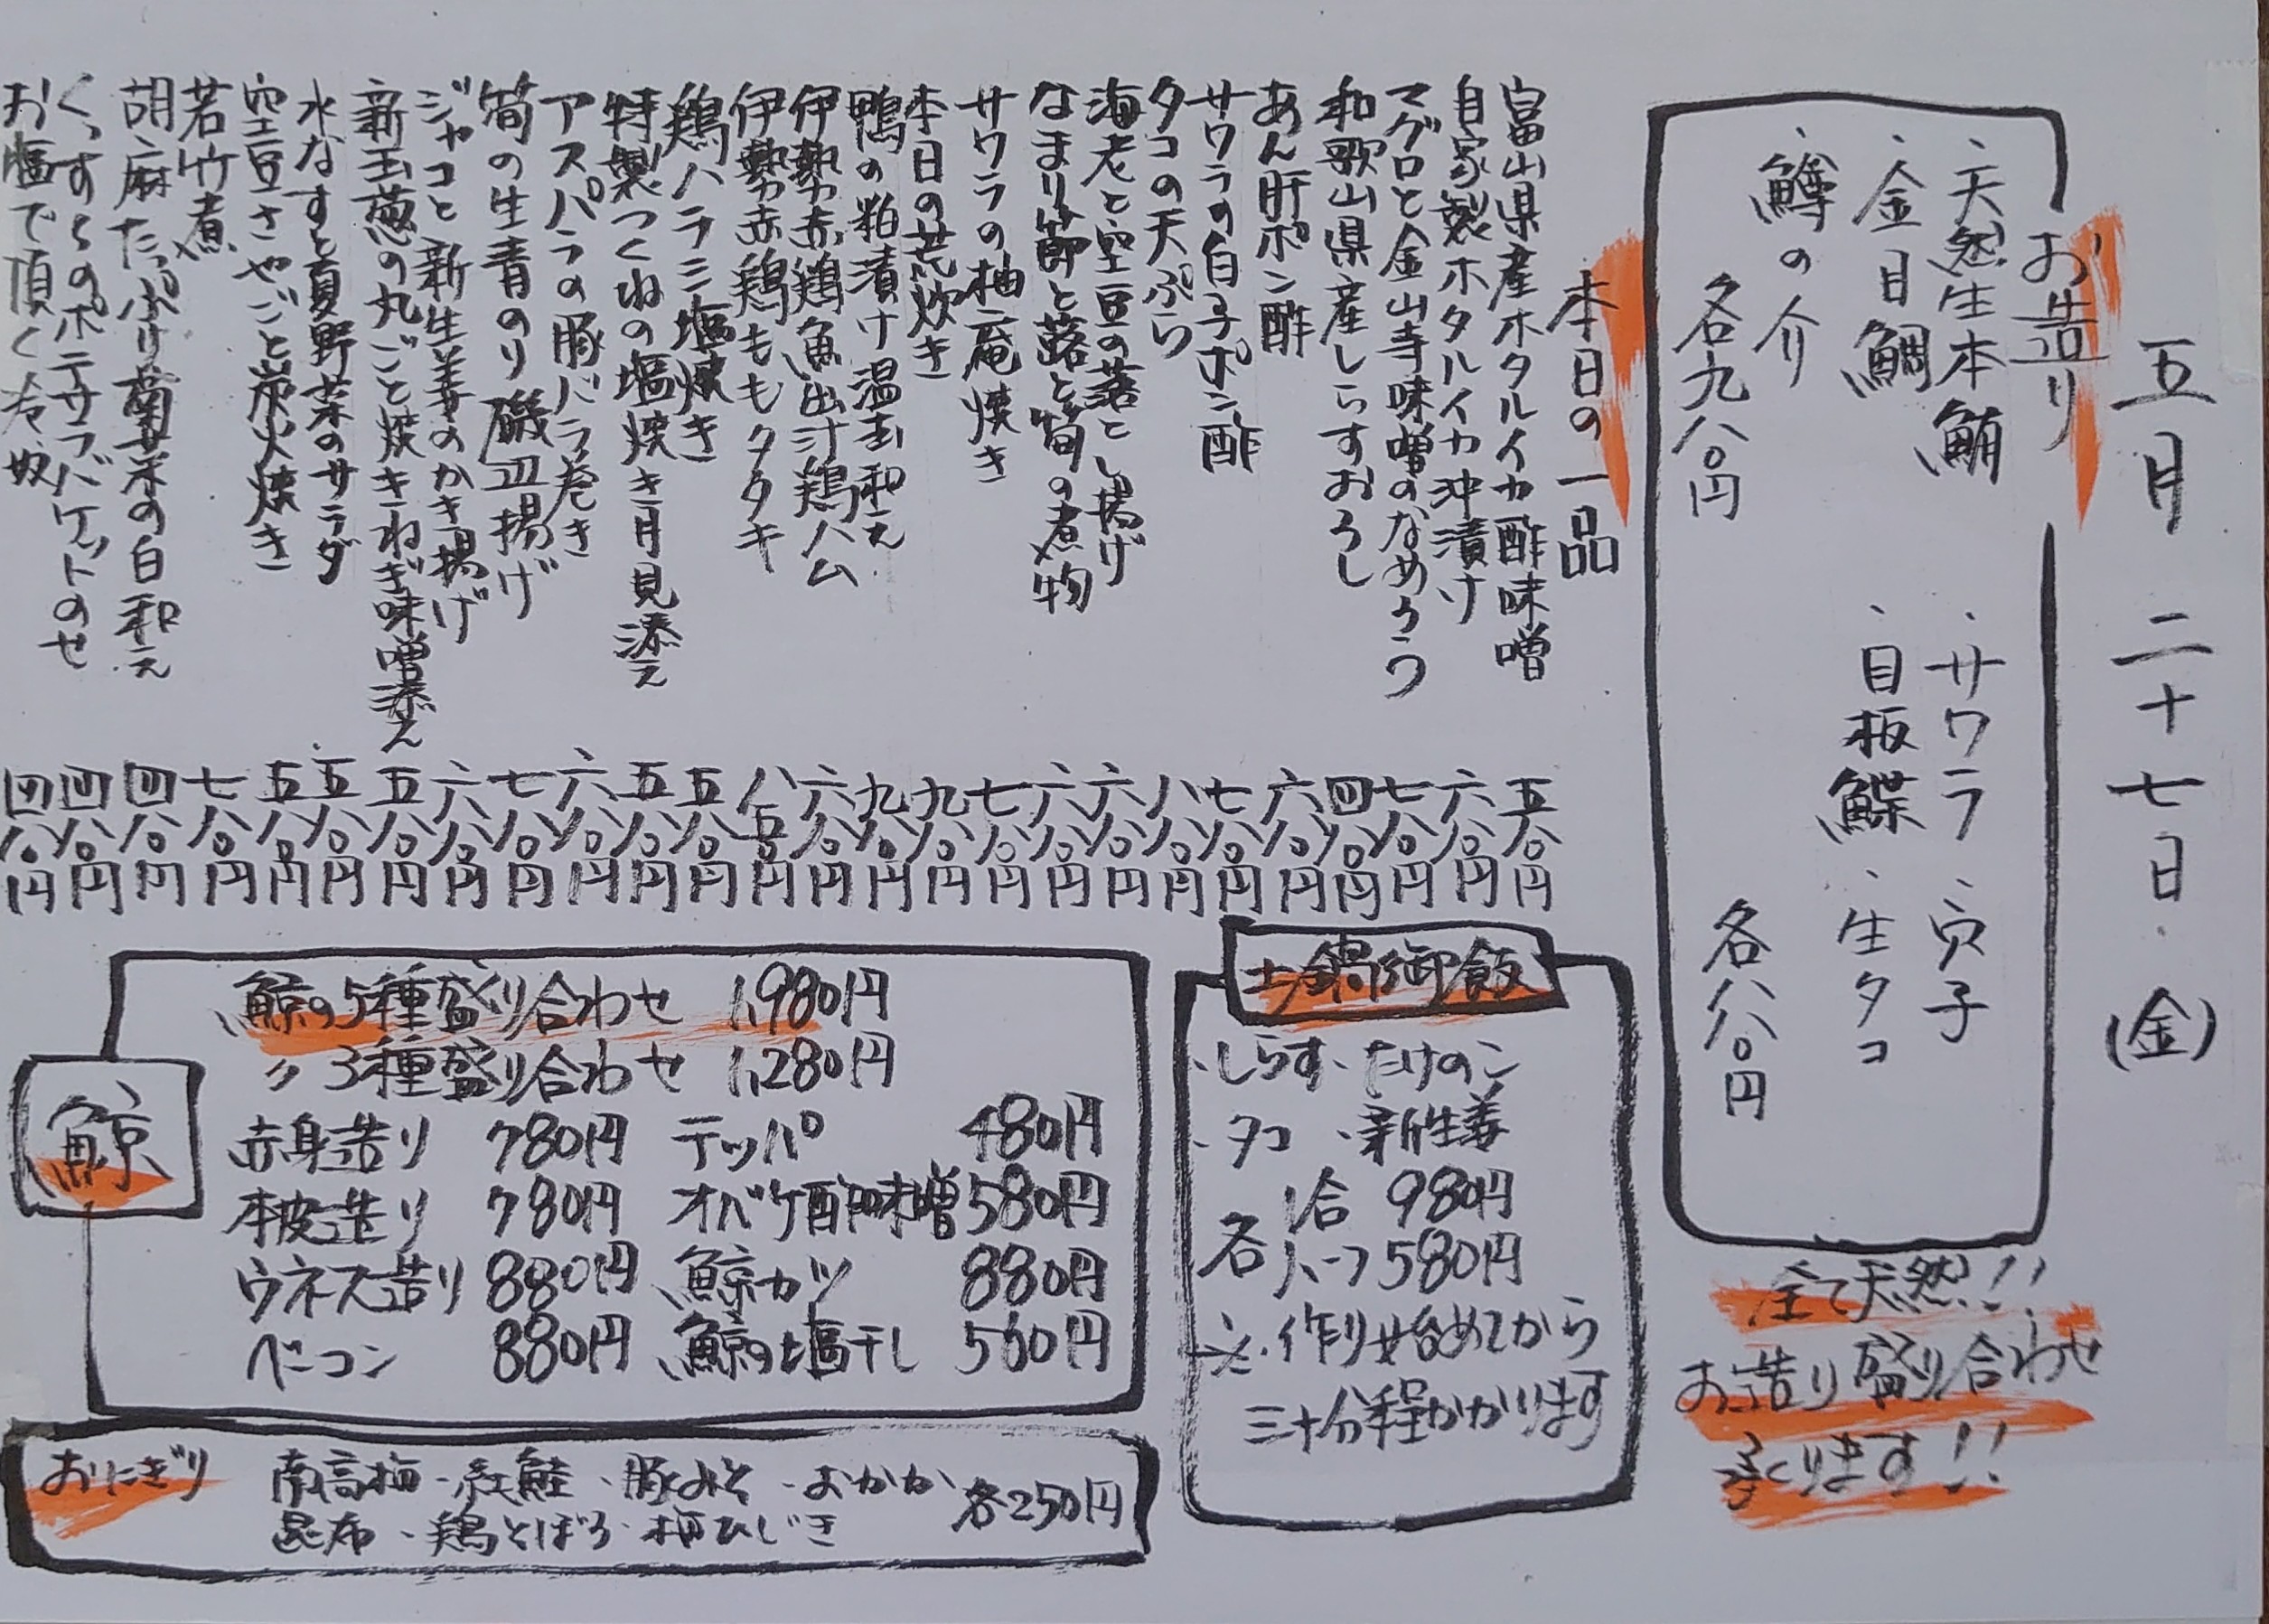 五月二十七日(金)
お造り
・天然生本鮪
・サワラ・穴子
・金目鯛
・目板鰈・生タコ
・鱒の介
各九八〇円
各八八〇円
全て天然!!
お造り盛り合わせ
承ります!!
本日の一品
富山県産ホタルイカ酢味噌 五八〇円
自家製ホタルイカ沖漬け 六八〇円
マグロと金山寺味噌のなめろう 七八〇円
和歌山県産しらすおろし 四八〇円
あん肝ポン酢 六八〇円
サワラの白子ポン酢 七八〇円
タコの天ぷら 八八〇円
海老と空豆の落とし揚げ 六八〇円
なまり節と蕗と筍の煮物 六八〇円
サワラの柚庵焼き 七八〇円
本日の荒炊き 九八〇円
鴨の粕漬け温玉和え 九八〇円
伊勢赤鶏魚出汁鶏ハム 六八〇円
伊勢赤鶏ももタタキ 八五〇円
鶏ハラミ塩焼き 五八〇円
特製つくねの塩焼き月見添え 五八〇円
アスパラの豚バラ巻き 六八〇円
筍の生青のり磯辺揚げ 七八〇円
ジャコと新生姜のかき揚げ 六八〇円
新玉葱の丸ごと焼きねぎ味噌添え 五八〇円
水なすと夏野菜のサラダ 五八〇円
空豆さやごと炭火焼き 五八〇円
若竹煮 七八〇円
胡麻たっぷり菊菜の白和え 四八〇円
くんすらのポテサラバケットのせ 四八〇円
お塩で頂く冷奴 四八〇円
土鍋御飯
・しらす・たけのこ
・タコ ・新生姜
各 1合 980円
ハーフ 580円
※作り始めてから
三十分程かかります
鯨
鯨の5種盛り合わせ 1,980円
〃3種盛り合わせ 1,280円
赤身造り 780円 テッパ 480円
本皮造り 780円 オバケ酢味噌 580円
ウネス造り 880円 鯨カツ 880円
ベーコン 880円 鯨の塩干し 560円
おにぎり
南高梅・紅鮭・豚みそ・おかか
昆布・鶏そぼろ・梅ひじき
各250円